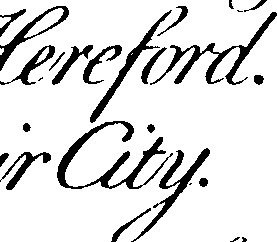 Hereford.
ir City.